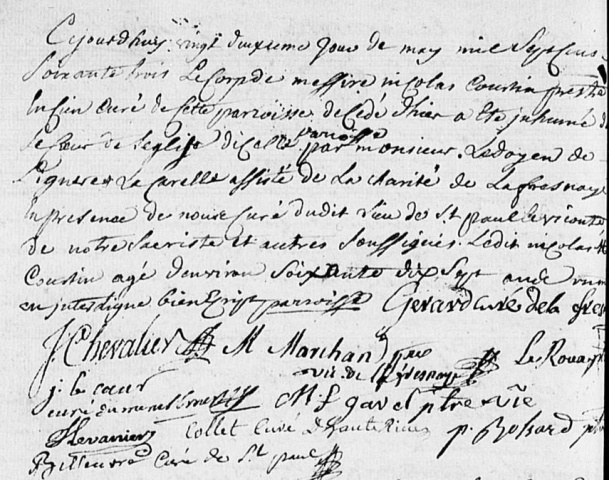 Cejourdhuy vingt deuxieme jour de may mil sept cens
Soixante trois Le Corps de messire nicolas Courtin prestre
ancien Curé de Cette parroisse decedé d'hier a été jnhumé d
le Coeur de leglise d'icelle parroisse par monsieur Le doyen de
Ligneres La Carelle assisté de La charité de La fresnay
en presence de nous Curé dudit lieu de St paul le vicomte
de notre Sacriste et autres Soussignés. Ledit nicolas
Courtin agé denviron Soixante dix Sept ans
en jnterligne bien Ecript parroisse Gerard Cure de la fres
J Chevalier M Marchand
vic de fresnaye Le Roua
j. le coeur
curé du mesnil M f gavel ptre vic
Collet Curé p. Bossard
Curé de St paul